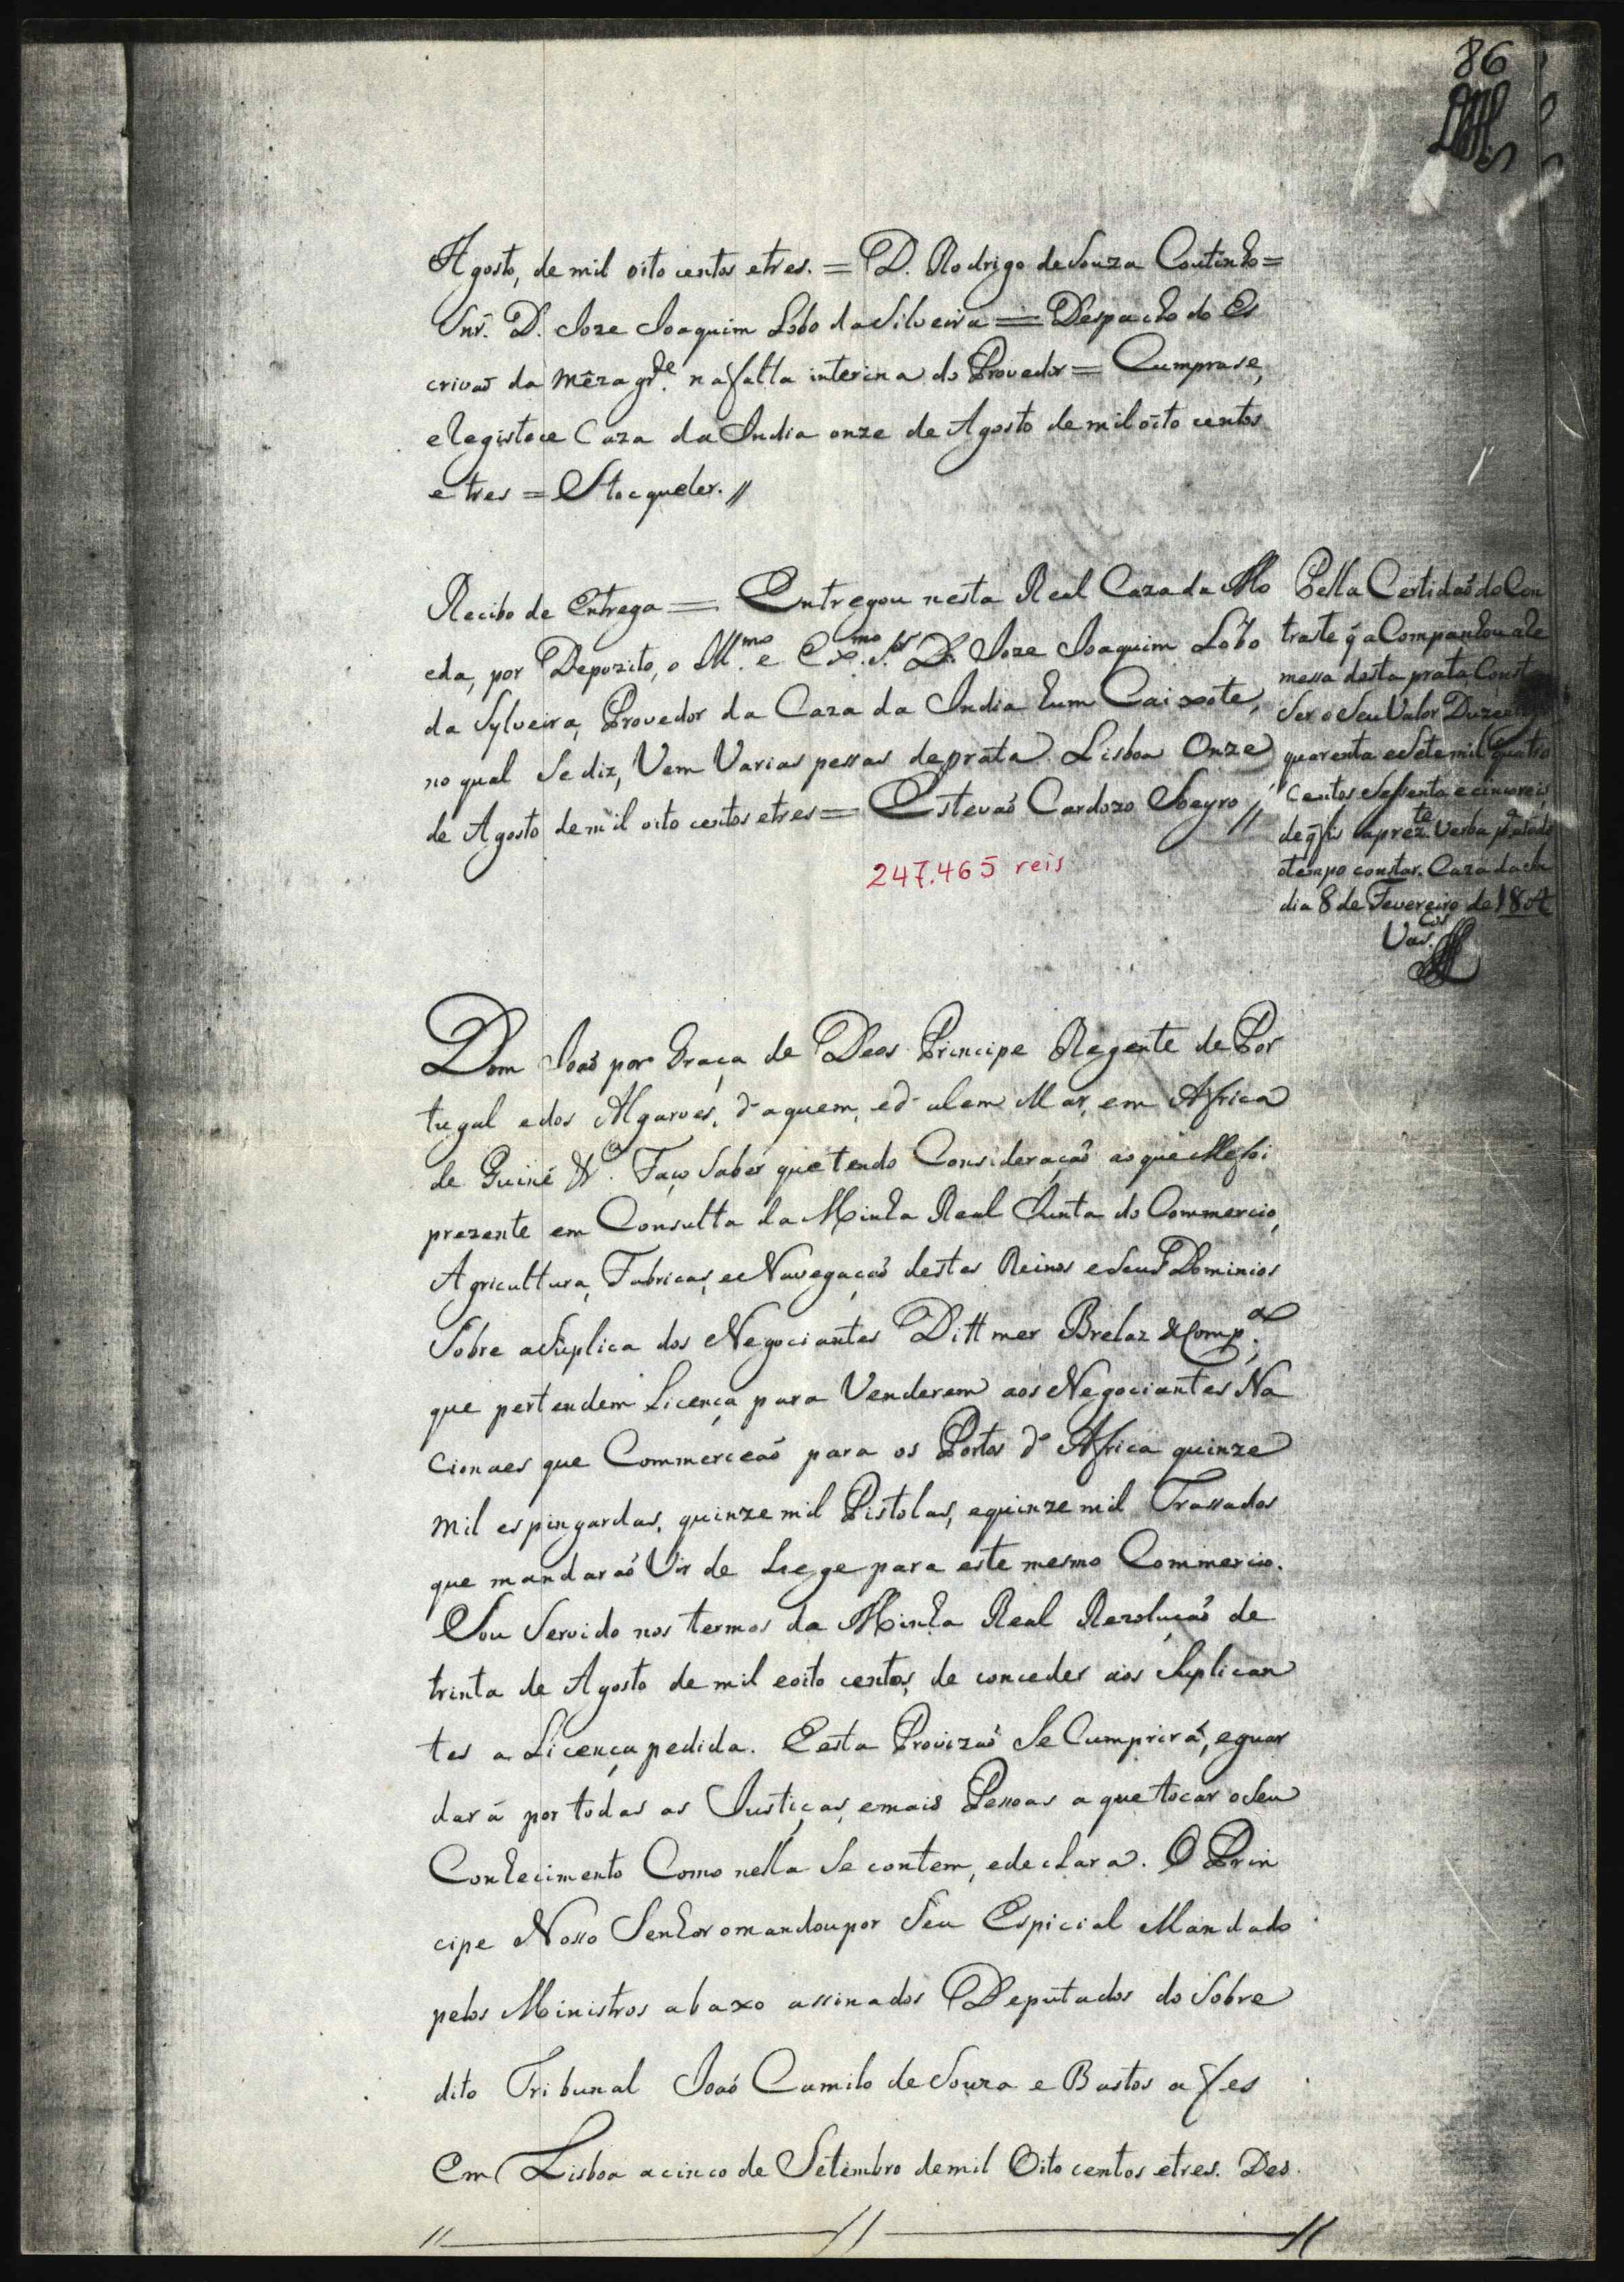 86
Agosto, de mil oito centos etres. = D. Rodrigo deSouza Coutinho =
Snr. D. Joze Joaquim Lobo daSilveira = Despacho do Es
crivaõ da Mêza gr.de nafalta interina do Provedor = Cumprase,
eRegistece Caza da India onze de Agosto demil oito centos
e tres = Stocqueler. //
Recibo de Entrega = Entregou nesta Real Cazada Mo
eda, por Depozito, o Ill.mo e Ex.mo S.or D. Joze Joaquim Lobo
da Sylveira, Provedor da Caza da India hum Caixote,
no qual Se diz, Vem Varias pessas deprata. Lisboa Onze
de Agosto demil oito centos etres = Estevaõ Cardozo Soeyro //
247.465 reis
Pella Certidaõ do Con
traste q̃ aCompanhou aRe
messa desta prata, Consta
Ser o Seu Valor Duzentos
quarenta eSete mil quatro
Centos Sessenta e cinco reis,
de q̃ fis a prez.te Verba p.a atodo
otempo constar. Caza da In
dia 8 de Fevereiro de 1804
Vas.cos
Dom Joaõ por Graça de Deos Principe Regente de Por
tugal edos Algarves, d'aquem, ed'alem Mar, em Africa
de Guiné &.a Faço Saber que tendo Consideraçaõ ao que Mefoi
prezente em Consulta da Minha Real Junta do Commercio,
Agricultura, Fabricas, eNavegaçaõ destes Reinos eSeus Dominios
Sobre aSuplica dos Negociantes Dittmer Brelaz &Comp.a,
que pertendem Licença para Venderem aos Negociantes Na
cionaes que Commerceaõ para os Portos d'Africa quinze
mil espingardas, quinze mil Pistolas, equinze mil Trassados
que mandaraõ Vir de Liege para este mesmo Commercio.
Sou Servido nos termos da Minha Real Rezoluçaõ de
trinta de Agosto de mil eoito centos, de conceder aos Suplican
tes a Licença pedida. Eesta Provizaõ Se Cumprirá, eguar
dará por todas as Justiças, emais Pessoas a que tocar oSeu
Conhecimento Como nella Se contem, edeclara. O Prin
cipe Nosso Senhor omandou por Seu Espicial Mandado
pelos Ministros abaxo assinados Deputados do Sobre
dito Tribunal Joaõ Camilo de Souza e Bastos a fes
Em Lisboa acinco de Setembro demil Oito centos etres. Des.